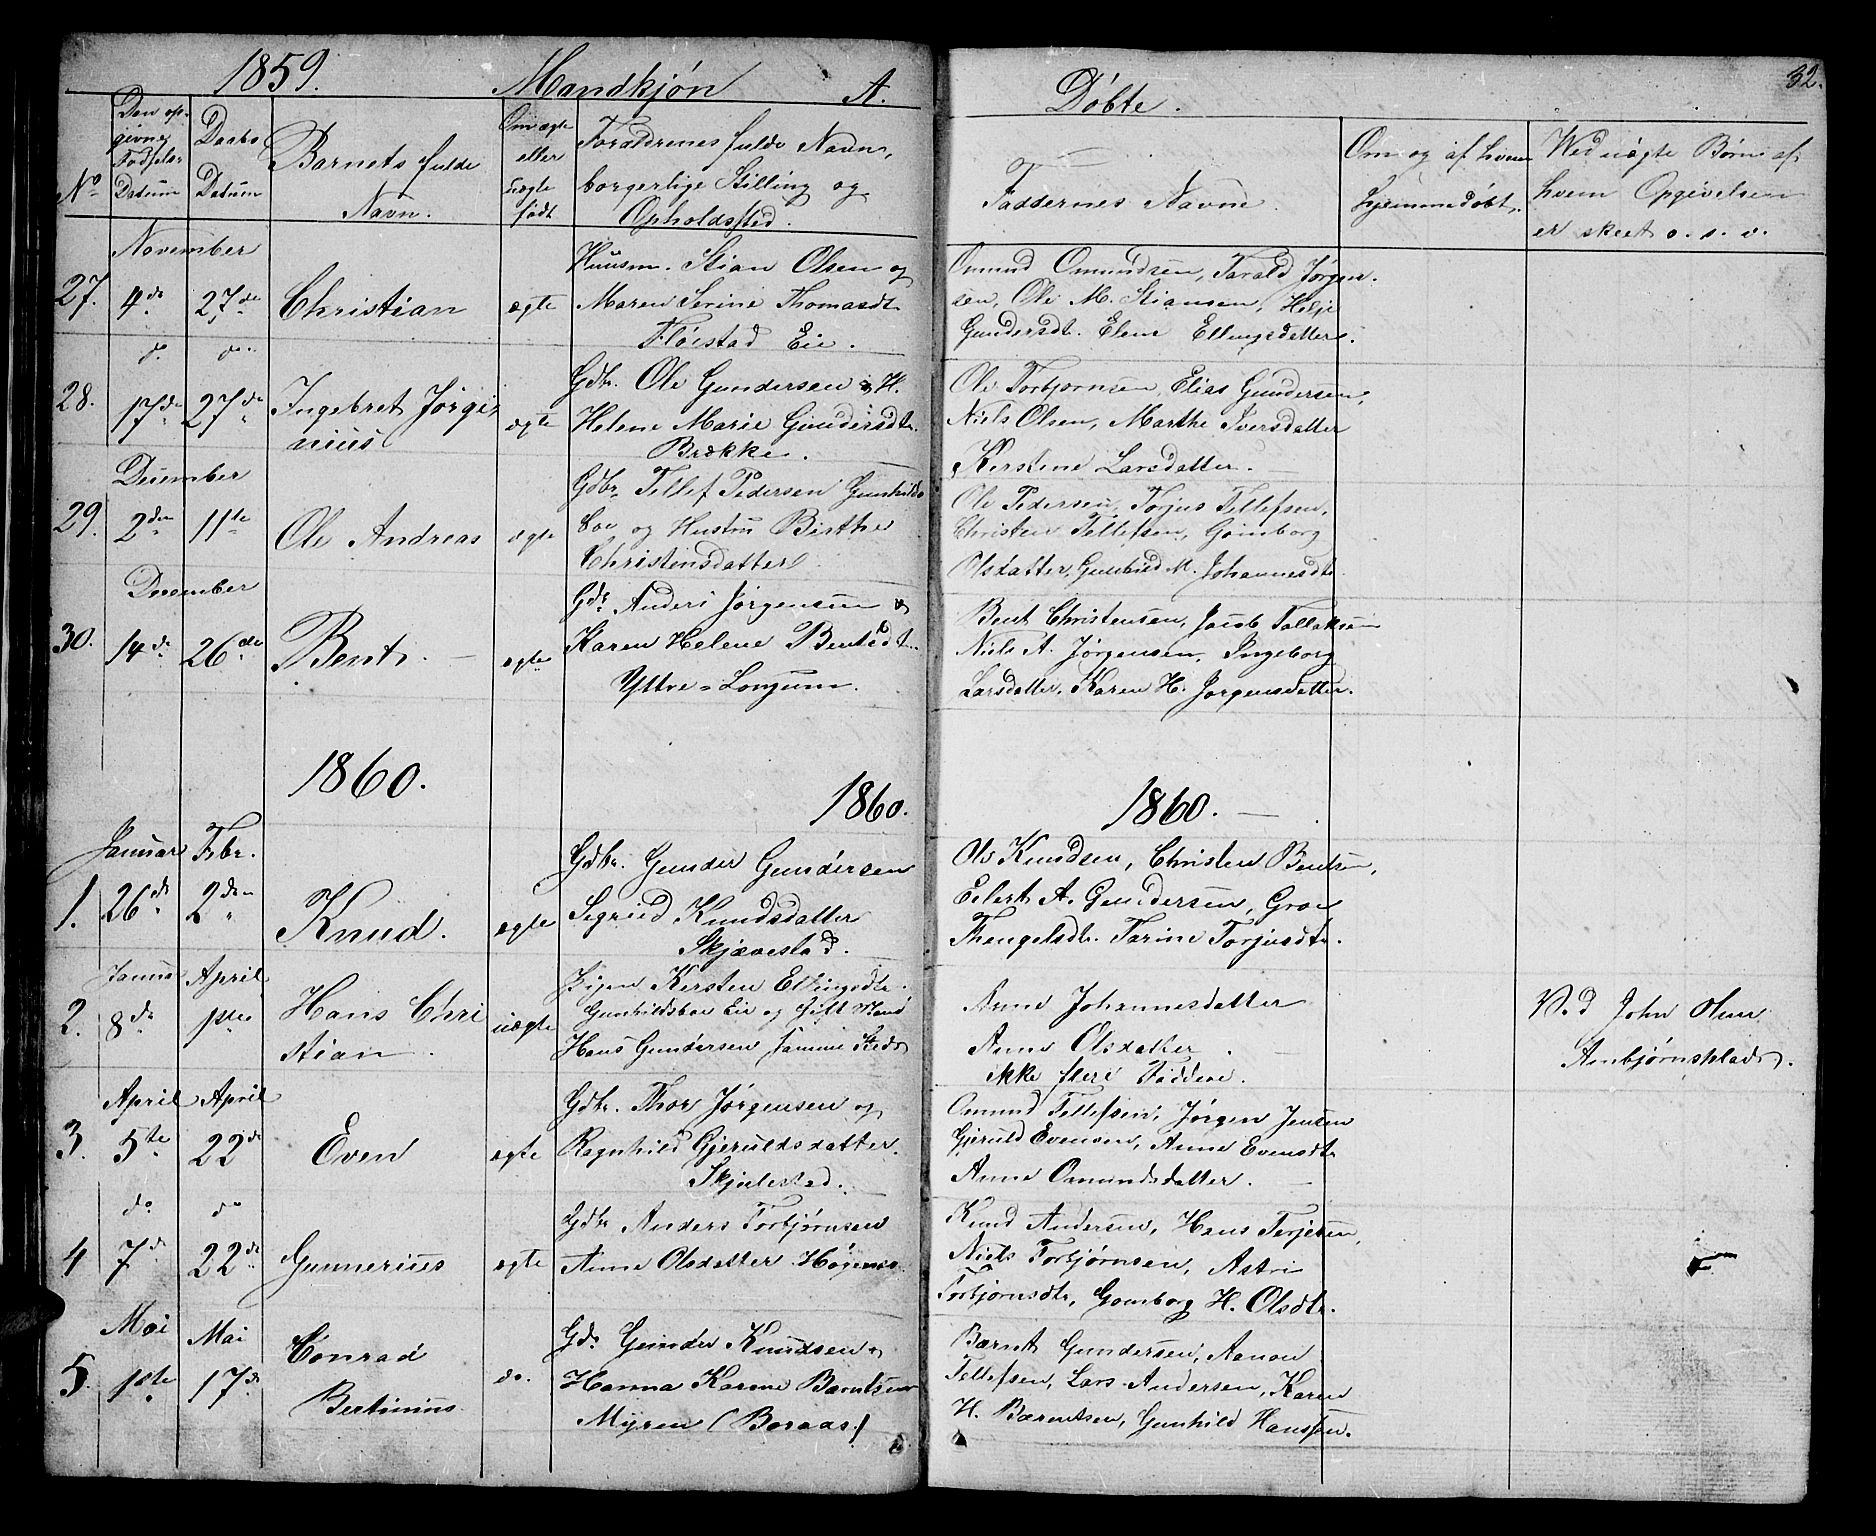 1859. Mandkjøn A.
Døbte. 32.
No
Den op-
givne
Fødsels-
Datum
Daabs
Datum
Barnets fulde
Navn.
Om ægte
eller
uægte
født
Forældrenes fulde Navn,
borgerlige Stilling og
Opholdssted.
Faddernes Navne.
Om og af hvem
hjemmedøbt.
Ved uægte Børn af
hvem Opgivelsen
er skeet o. s. v.
November
27. 4de 27de Christian ægte
Huusm. Stian Olsen og
Maren Serine Thomasdt.
Fløistad Eie.
Omund Omundsen, Tarald Jørgen-
sen, Ole M. Stiansen, Helje
Gundersdt. Elene Ellingsdatter.
do do
28. 17de 27de Ingebret Jørgi-
nius ægte
Gdbr. Ole Gundersen & H.
Helene Marie Gundersdtr.
Brække.
Ole Torbjørnsen, Elias Gundersen,
Niels Olsen, Marthe Iversdatter
Kerstene Larsdatter.
December
29. 2den 11te Ole Andreas ægte
Gdbr. Tellef Pedersen Gunhilds-
boe og Hustru Birthe
Christensdatter
Ole Pedersen, Torjus Tellefsen,
Christen Tellefsen, Gomborg
Olsdatter, Gunhild M. Johannesdtr.
December
30. 14de 26de Bent. ægte
Gdr. Anders Jørgensen &
Karen Helene Bentsdt.
Yttre-Longum.
Bent Christensen, Jacob Tallaksen
Niels A. Jørgensen, Ingeborg
Larsdatter, Karen H. Jørgensdatter.
1860.
1860.
1860.
Januar Febr.
1. 26de 2den Knud. ægte
Gdbr. Gunder Gundersen
Segried Knudsdatter
Skjævestad.
Ole Knudsen, Christen Bentsen,
Eilert A. Gundersen, Groe
Thengelsdt. Tarine Torjusdtr.
Januar April
2. 8de 1ste Hans Chri
stian. uægte
Pigen Kersten Ellingsdtr.
Gunhildsboe Eie og Gift Mand
Hans Gundersen samme Sted
Anne Johannesdatter
Anne Olsdatter
ikke flere Faddere.
Ved John Olsen
Ambjørnsplads.
April April
3. 5te 22de Even ægte
Gdbr. Thor Jørgensen og
Ragnhild Gjeruldsdatter.
Skjulestad.
Omund Tellefsen, Jørgen Jensen
Gjeruld Evensen, Anne Evensdtr
Anne Omundsdatter.
do do
4 7de 22de Gunnerius ægte
Gdbr Anders Torbjørnsen
Anne Olsdatter
Knud Andersen, Hans Terjesen,
Niels Torbjørnsen, Astri
Torbjørnsdtr, Gomborg H. Olsdtr.
Mai Mai
5. 1ste 17de Conrad
Bertinius do.
Gdr. Gunder Knudsen &
Hanna Karine Barntsen
Myren (Boraas)
Bærnt Gundersen, Aanon
Tellefsen, Lars Andersen, Karen
H. Bærentsen, Gunhild Hanssen.